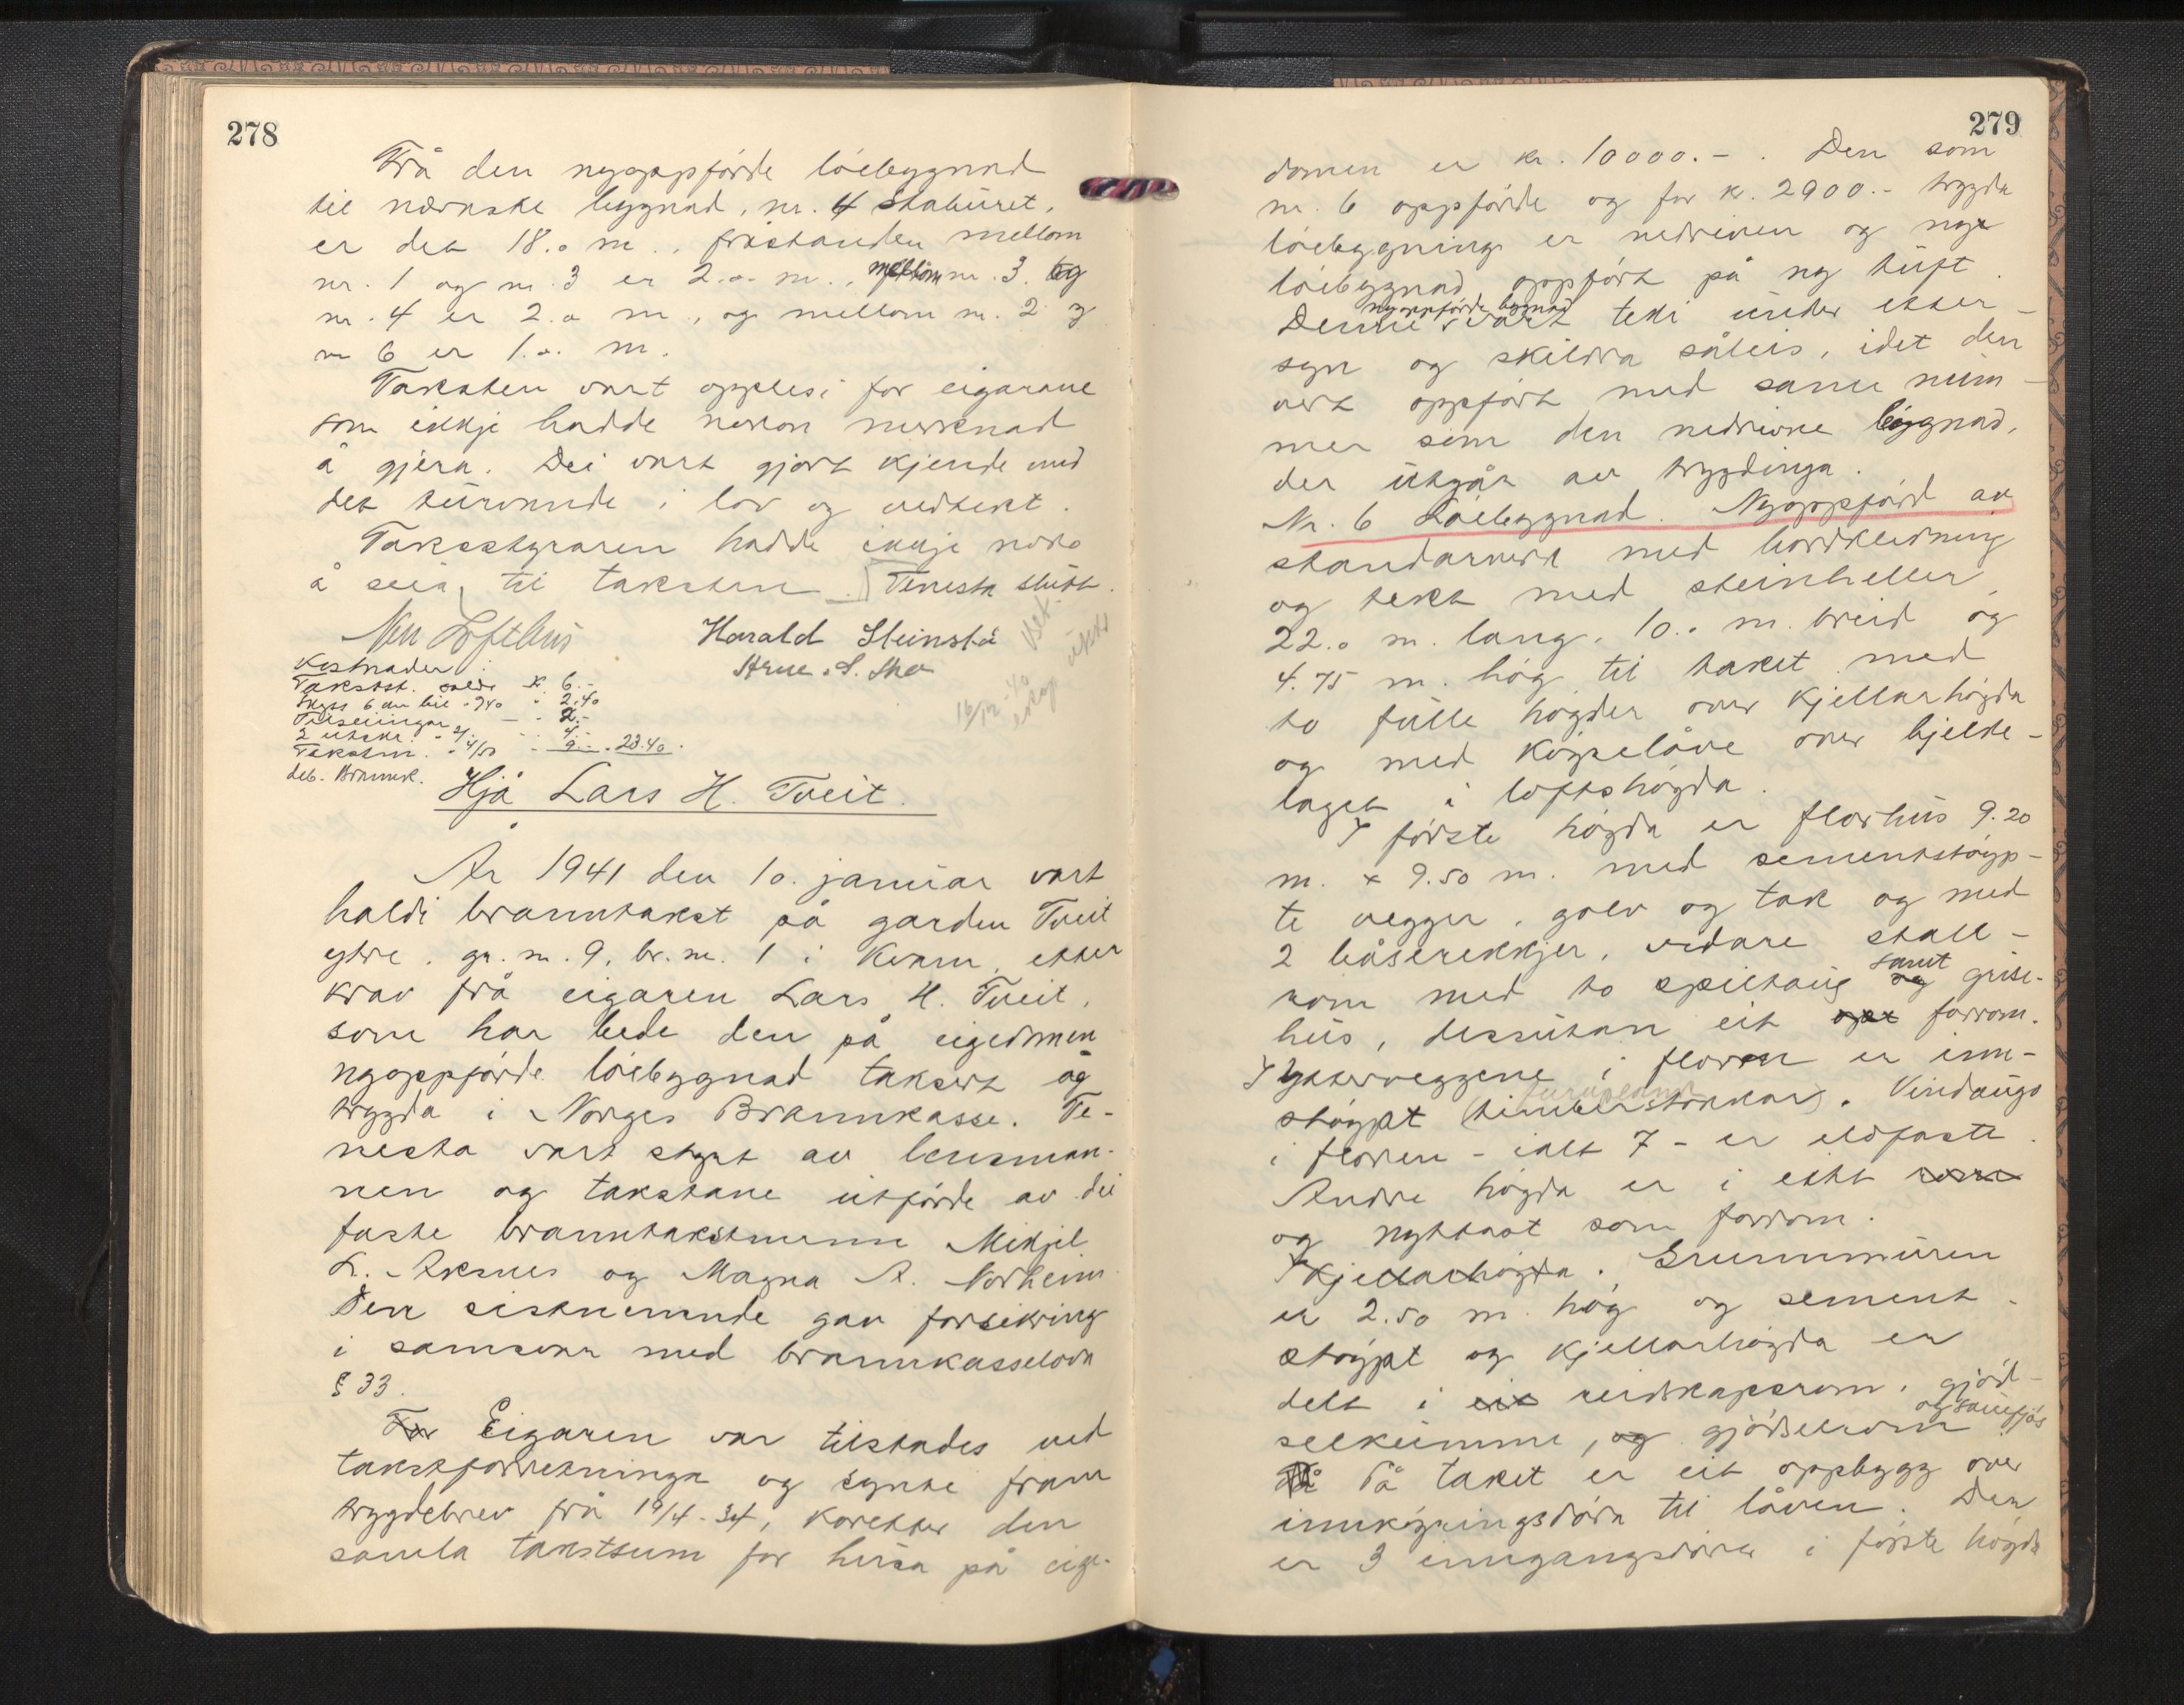 278
Frå den nyoppførde løebygnad
til næraste bygnad, nr. 4 Stabúret,
er det 18.0 m., fråstanden mellom
nr. 1 og nr. 3 er 2.0 m., mellom nr. 3 og
nr. 4 er 2.0 m., og mellom nr. 2 og
nr 6 er 1.0 m.
Taksten vart opplesi for eigarane
som ikkje hadde nokon merknad
å gjera. Dei vart gjort kjende med
det turvande i lov og vedtekt.
Takststyraren hadde ikkje noko
å seia til taksten. Tenesta slútt.
Lofthus
Harald Steinstø
Arne S.
16/12 40
Kostnader:
Takstst. solde kr. 6.-
Skyss 6 km bil á 040 " 2.40
Tilseiingar - " 2.-
2 utskr. á 2/- " 4.-
Takstm. á 4/50 " 9.- 23.40.
deb. Brannk.
Hjå Lars H. Tveit.
År 1941 den 10. januar vart
haldi branntakst på garden Tveit
ytre, gr. nr. 9, br. nr. 1 i Kvam, etter
krav frå eigaren Lars H. Tveit,
som har bede den på eigedomen
nyoppførde løebygnad taksert og
trygda i Norges Brannkasse. Te-
nesta vart styrt av lensman-
nen og takstane utførde av dei
faste branntakstmenn Mikjel
L. Aksnes og Magna A. Norheim
Den sistnemnde gav forsikring
i samsvar med brannkasselova
§ 33.
For Eigaren var tilstades ved
takstforretninga og synte fram
trygdebrev frå 19/4-34, koretter den
samla takstsum for húsa på eige-
279
domen er kr. 10000.-. Den som
nr. 6 oppførde og for kr. 2900.- trygda
løebygning er nedriven og nye
løebygnad oppført på ny túft.
nyoppførde bygnad
Denne vart teki under etter-
syn og skildra såleis, idet den
vert oppført med same num-
mer som den nedrivne bygnad,
der útgår av trygdinga.
Nr. 6 Løebygnad. Nyoppførd av
standarverk med bordkledning
og tekt med steinheller,
22.0 m. lang, 10.0 m. breid og
4.75 m. høg til taket med
to fulle høgder over kjellarhøgda
og med køyrelåve over bjelke-
laget i loftshøgda.
I første høgda er florhús 9.20
m. x 9.50 m. med sementstøyp-
te vegger, golv og tak og med
2 båserekkjer, vidare stall-
rom med to spiltaug og samt grise-
hús, dessutan eit opt forrom.
I ytterveggene i floren er inn-
støypt (timberstokkar). Vindaugo
i floren - ialt 7 - er eldfaste.
Andre høgda er i eitt rom
og nyttast som forrom.
I kjellarhøgda. Grunnmuren
er 2.50 m. høg og sement-
støypt og kjellarhøgda er
delt i eit reidskapsrom, gjød-
selkumme, og gjødselrom og sauefjøs
På På taket er eit oppbygg over
innkøyringsdøra til låven. Der
er 3 inngangsdører i første høgda